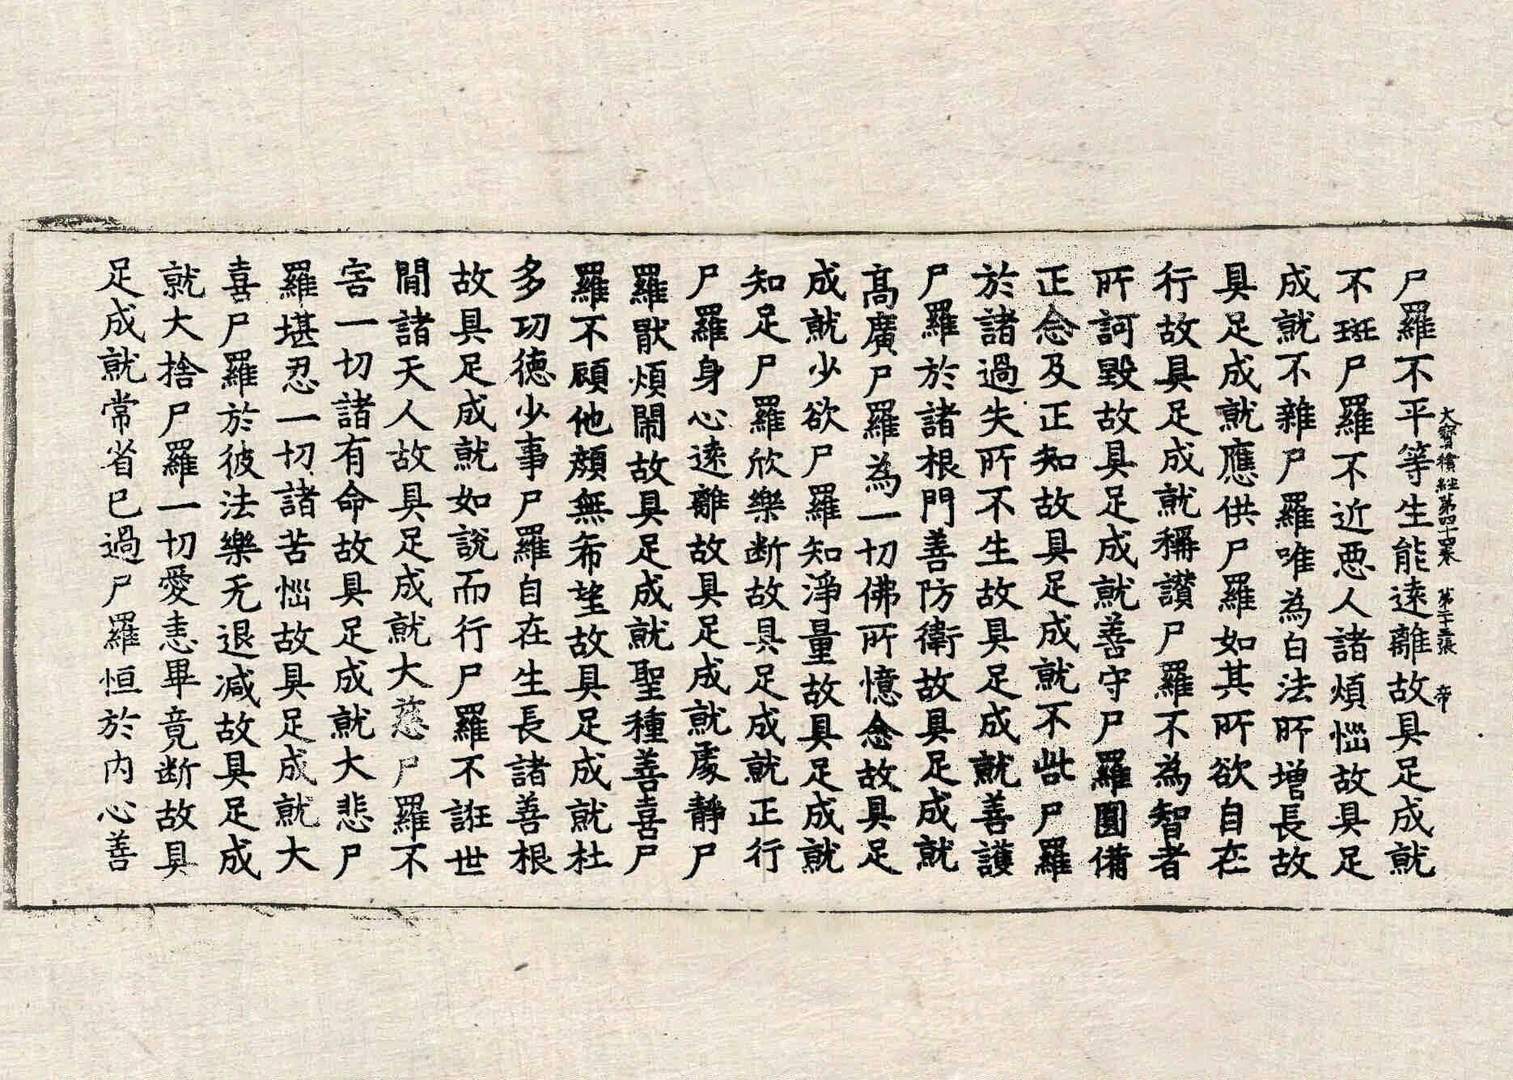 大寶積經第四十四卷 第二十三張 帝
尸羅不平等生能遠離故具足成就
不斑尸羅不近惡人諸煩惱故具足
成就不雜尸羅唯為白法所增長故
具足成就應供尸羅如其所欲自在
行故具足成就稱讃尸羅不為智者
所訶毀故具足成就善守尸羅圓備
正念及正知故具足成就不呰尸羅
於諸過失所不生故具足成就善護
尸羅於諸根門善防衛故具足成就
高廣尸羅為一切佛所憶念故具足
成就少欲尸羅知淨量故具足成就
知足尸羅欣樂断故具足成就正行
尸羅身心遠離故具足成就處靜尸
羅猒煩閙故具足成就聖種善喜尸
羅不顧他顔無希望故具足成就杜
多功德少事尸羅自在生長諸善根
故具足成就如說而行尸羅不誑世
間諸天人故具足成就大慈尸羅不
害一切諸有命故具足成就大悲尸
羅堪忍一切諸苦惱故具足成就大
喜尸羅於彼法樂无退减故具足成
就大捨尸羅一切愛恚畢竟断故具
足成就常省已過尸羅恒於内心善